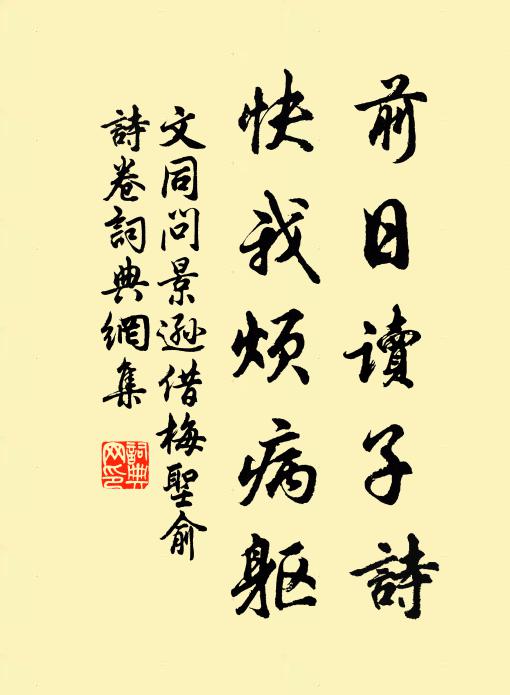 前日讀子詩
快我煩病軀
文同問景遜借梅聖俞
詩卷詞典網集
詞典
网印